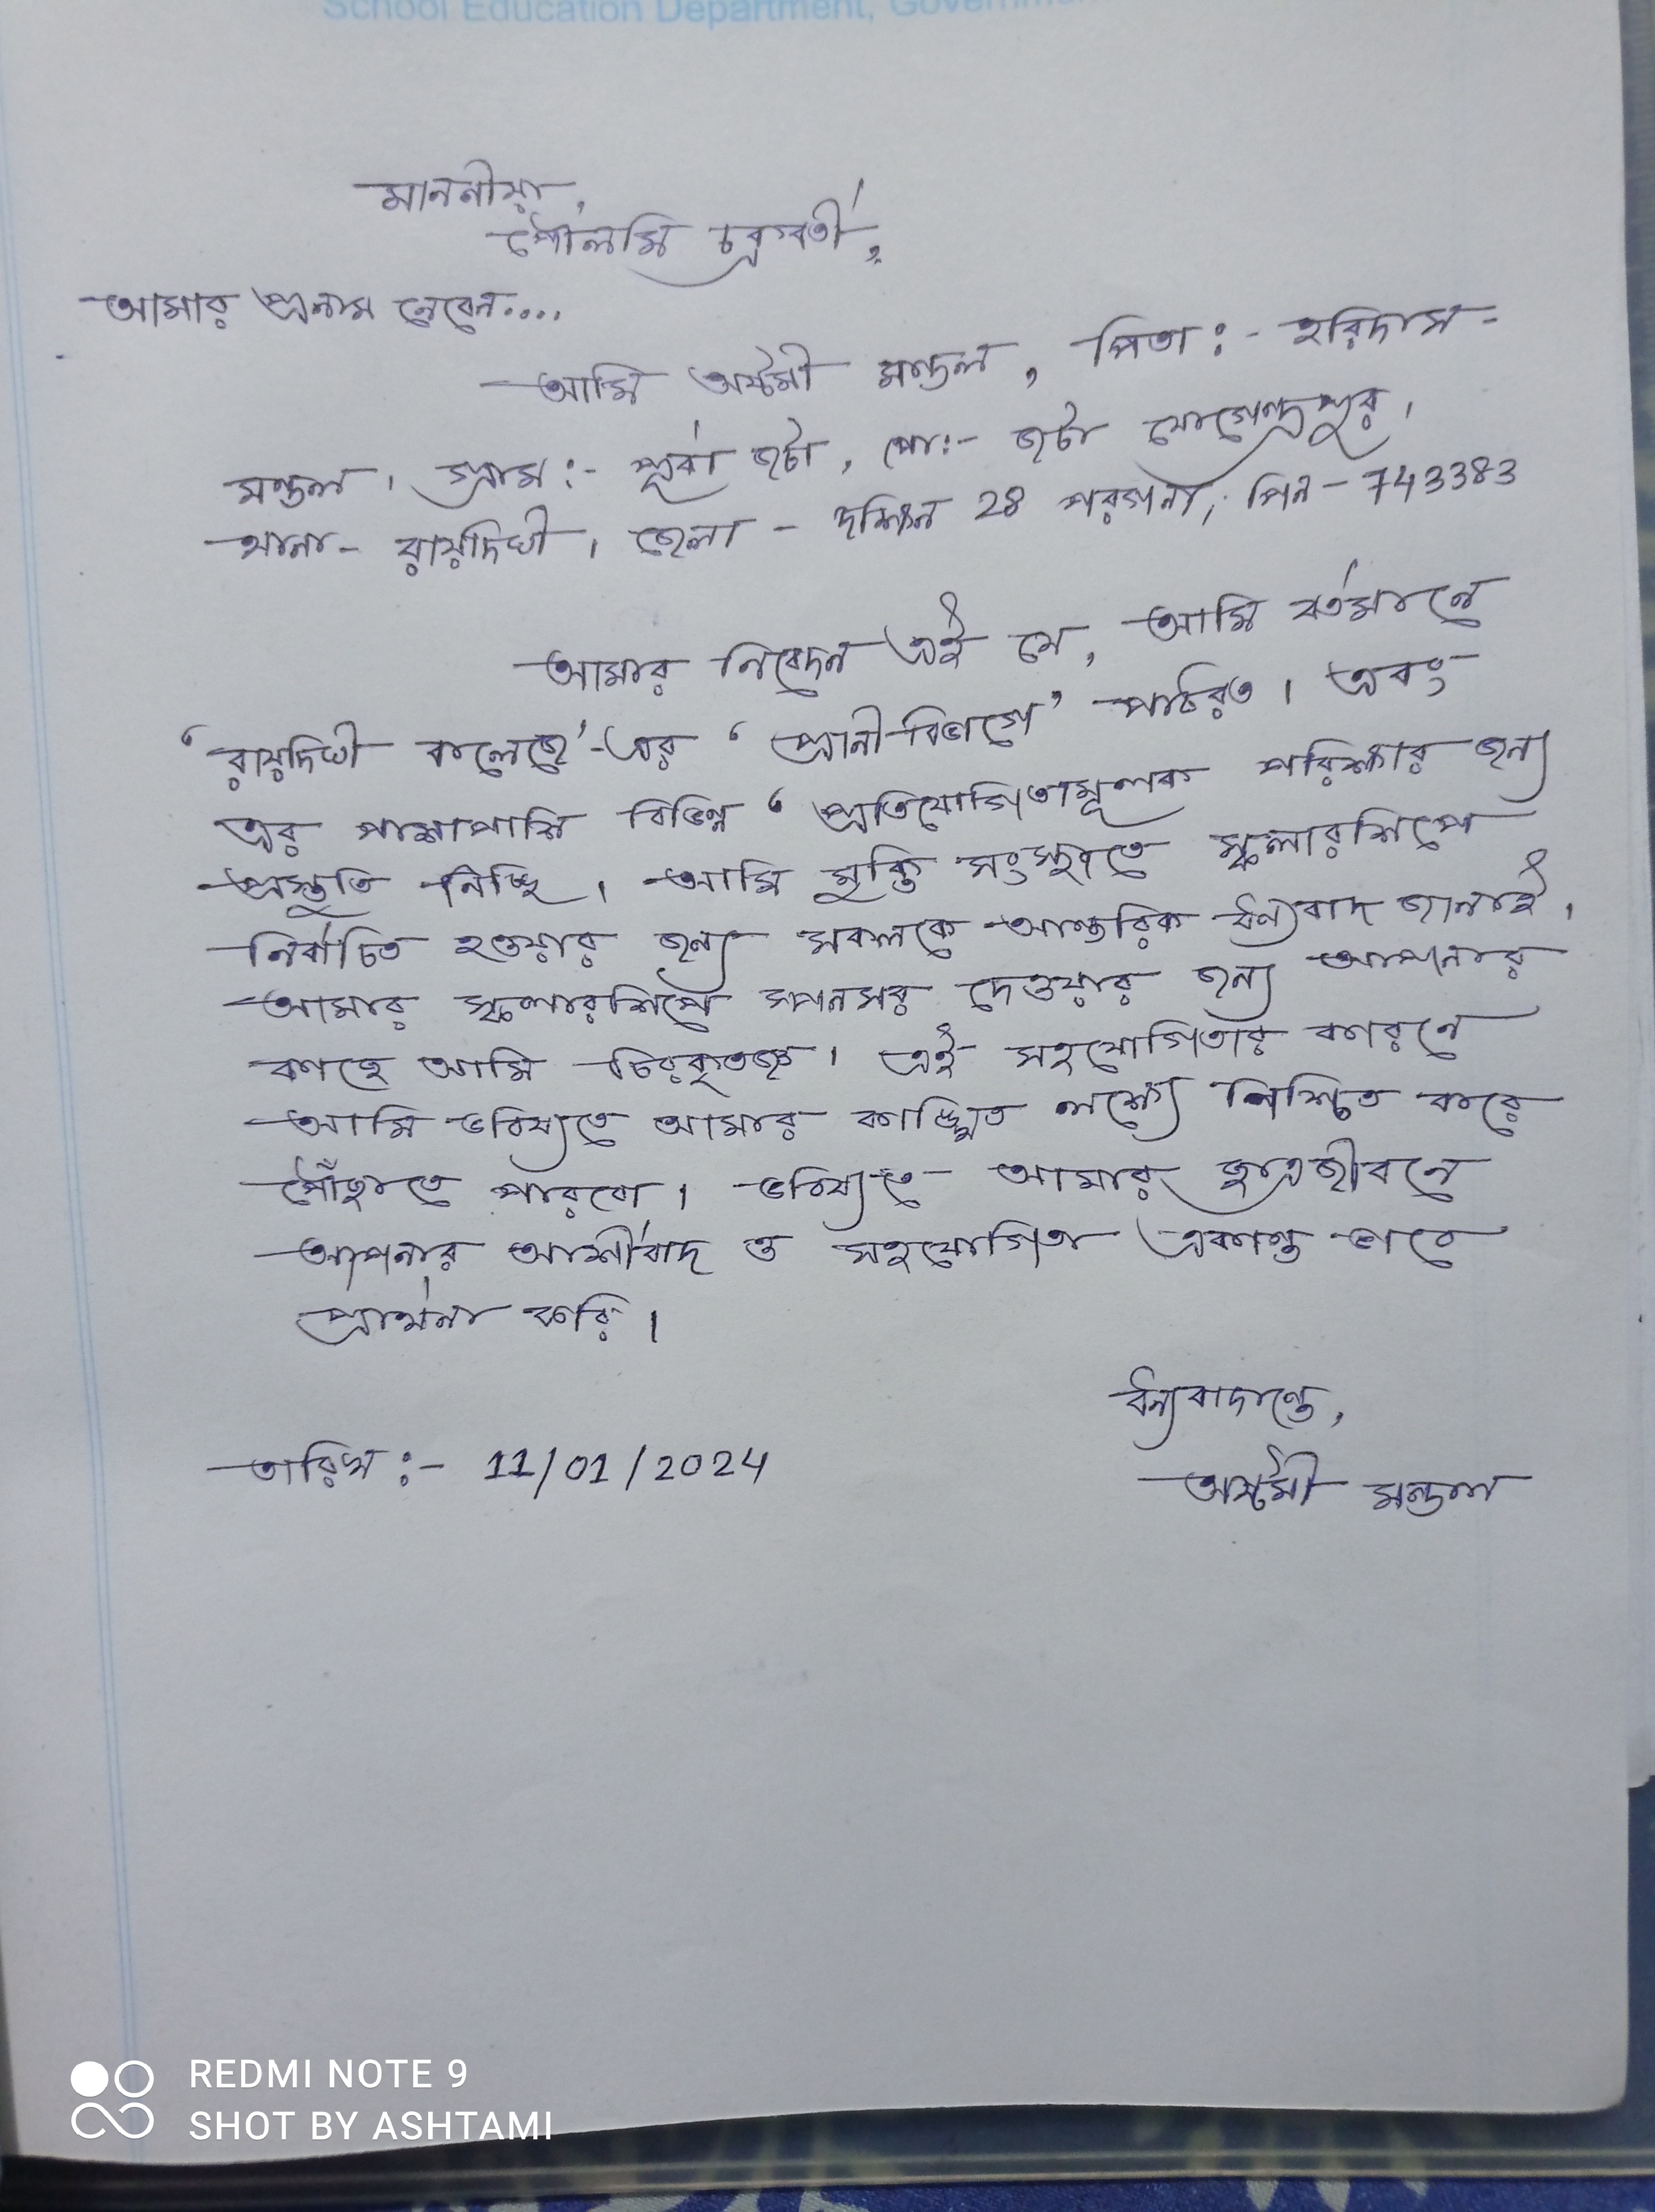 School Education Department, Governm
মাননীয়া,
পৌলমি চক্রবর্তী,
আমার প্রনাম নেবেন....
আমি অষ্টমী মন্ডল, পিতা:- হরিদাস-
মন্ডল। গ্রাম:- পূর্বা জটা, পো:- জটা যোগেন্দ্রপুর।
থানা- রায়দিঘী। জেলা - দক্ষিন 24 পরগনা, পিন - 743383
আমার নিবেদন এই যে, আমি বর্তমানে
'রায়দিঘী কলেজে'-এর ' প্রানীবিভাগে' পাঠরত। এবং
এর পাশাপাশি বিভিন্ন ' প্রতিযোগিতামূলক পরিক্ষার জন্য
প্রস্তুতি নিচ্ছি। আমি মুক্তি সংস্থাতে স্কলারশিপে
নির্বাচিত হওয়ার জন্য সকলকে আন্তরিক ধন্যবাদ জানাই,
আমার স্কলারশিপে স্পনসর দেওয়ার জন্য আপনার
কাছে আমি চিরকৃতজ্ঞ। এই সহযোগিতার কারনে
আমি ভবিষ্যতে আমার কাঙ্খিত লক্ষ্যে নিশ্চিত করে
পৌঁছাতে পারবো। ভবিষ্যতে আমার ছাত্রজীবনে
আপনার আর্শীবাদ ও সহযোগিতা একান্ত ভাবে
প্রার্থনা করি।
ধন্যবাদান্তে,
তারিখ:- 11/01/2024
অষ্টমী মন্ডল
REDMI NOTE 9
SHOT BY ASHTAMI